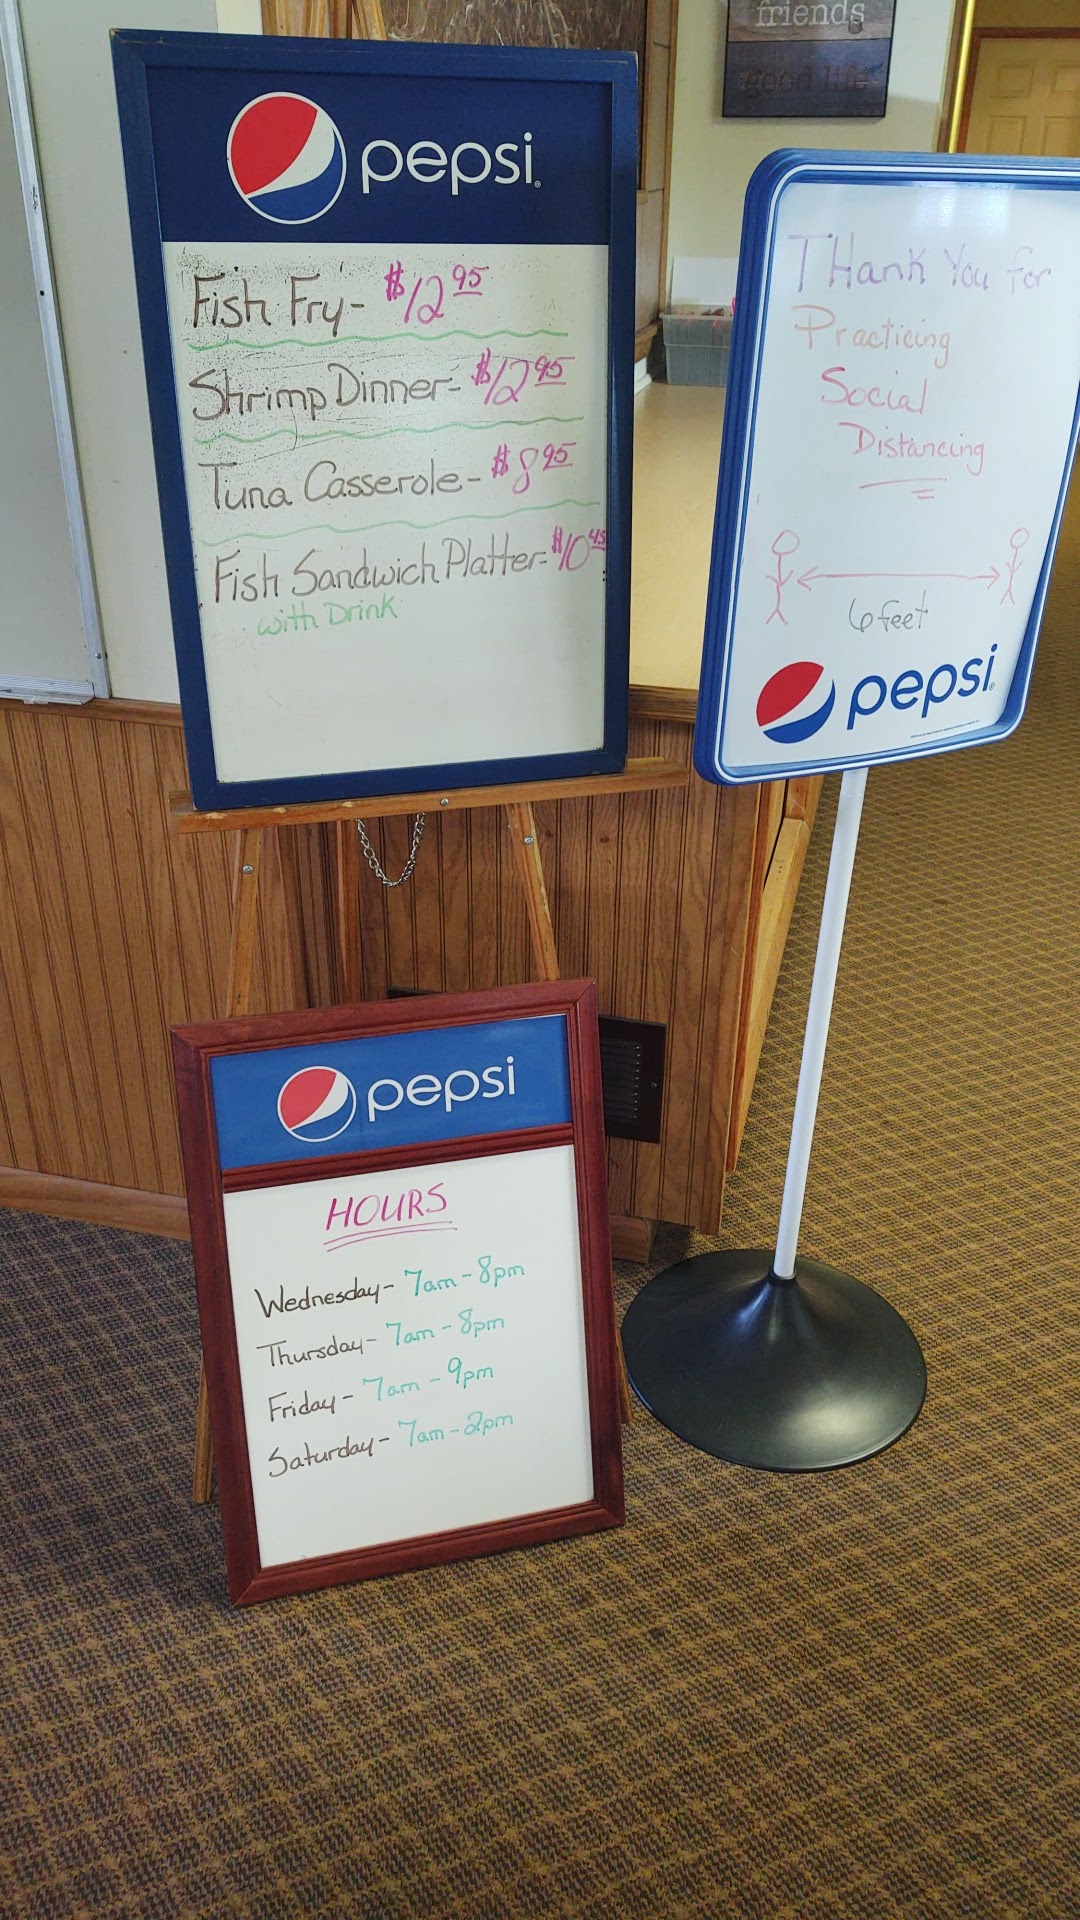 friends
good life
pepsi
Fish Fry- $12 95
Shrimp Dinner- $12 95
Tuna Casserole- $8 95
Fish Sandwich Platter- $10 45
with Drink
THank You for
Practicing
Social
Distancing
6 feet
pepsi
pepsi
HOURS
Wednesday- 7am - 8pm
Thursday- 7am - 8pm
Friday- 7am - 9pm
Saturday- 7am - 2pm